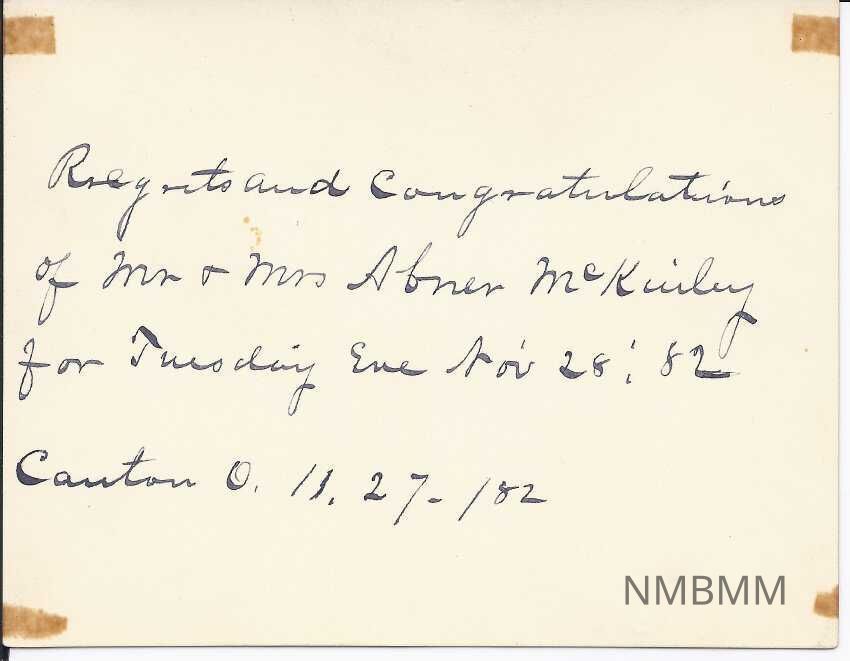 Regrets and Congratulations
of Mr & Mrs Abner McKinley
for Tuesday Eve Nov 28, '82
Canton O. 11. 27-/82
NMBMM